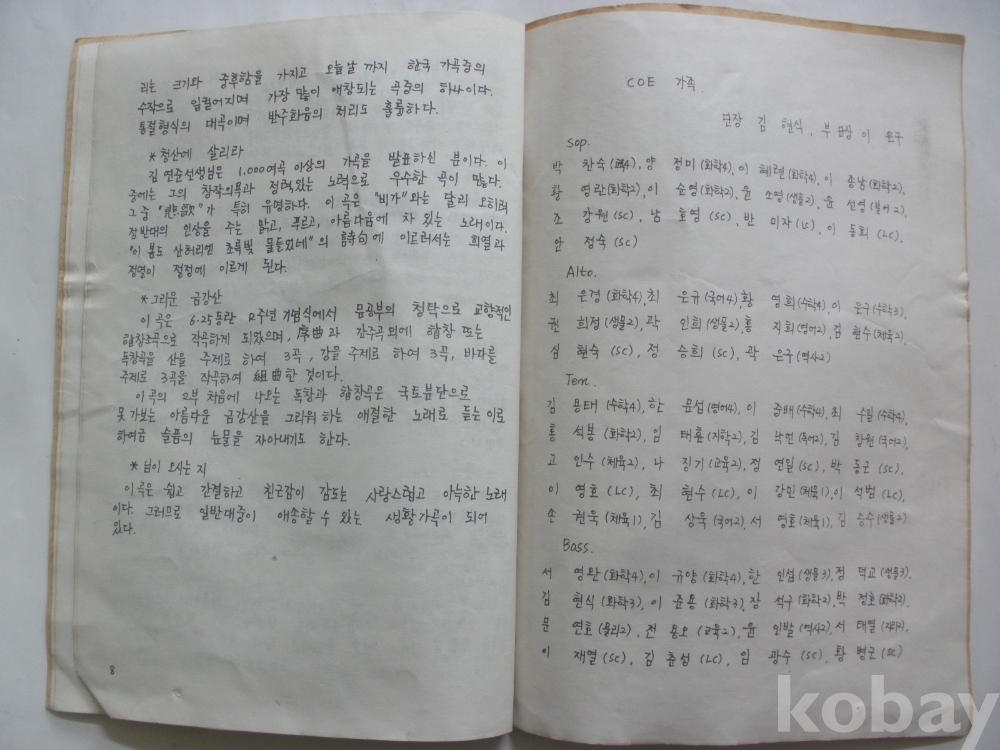 리는 크기와 중후함을 가지고 오늘날 까지 한국 가곡중의
수작으로 일컬어지며 가장 많이 애창되는 곡중의 하나이다.
통절형식의 대곡이며 반주화음의 처리도 훌륭하다.
* 청산에 살리라
김 연준선생님은 1,000여곡 이상의 가곡을 발표하신 분이다. 이
중에는 그의 창작의욕과 정력있는 노력으로 우수한 곡이 많다.
그중 "悲歌"가 특히 유명하다. 이 곡은 "비가"와는 달리 오히려
정반대의 인상을 주는 맑고, 푸르고, 아름다움에 차 있는 노래이다.
"이 봄도 산허리엔 초록빛 물들었네"의 詩句에 이르러서는 희열과
정열이 절정에 이르게 된다.
* 그리운 금강산
이 곡은 6·25동란 12주년 기념식에서 문공부의 청탁으로 교향적인
합창조곡으로 작곡하게 되었으며, 序曲과 간주곡외에 합창 또는
독창곡을 산을 주제로 하여 3곡, 강을 주제로 하여 3곡, 바다를
주제로 3곡을 작곡하여 組曲한 것이다.
이 곡의 2부 처음에 나오는 독창과 합창곡은 국토분단으로
못 가보는 아름다운 금강산을 그리워 하는 애절한 노래로 듣는 이로
하여금 슬픔의 눈물을 자아내기도 한다.
* 님이 오시는 지
이곡은 쉽고 간결하고 친근감이 감도는 사랑스럽고 아늑한 노래
이다. 그러므로 일반대중이 애송할 수 있는 생활가곡이 되어
있다.
8
COE 가족.
단장 김 현식, 부단장 이 윤구
Sop.
박 찬숙 양 정미(화학4), 이 혜련(화학4), 이 종남(화학2),
황 영란(화학2), 이 순영(화학2), 윤 소영(생물2), 윤 선영(불어2),
조 강원(SC), 남 호영(SC), 반 미자(LC), 이 동희(LC),
안 정숙(SC)
Alto.
최 은경(화학4), 최 은규(국어4), 황 영희(수학4), 이 윤구(수학3),
권 희정(생물2), 곽 인희(생물2), 홍 지희(영어2), 김 현수(체육2),
심 현숙(SC), 정 승희(SC), 곽 은구(역사2)
Ten.
김 용태(수학4), 한 문섭(영어4), 이 중배(수학4), 최 수일(수학4),
홍 석봉(화학2), 임 태훈(지학2), 김 낙연(국어2), 김 창원(국어2),
고 인수(체육2), 나 징기(교육2), 정 연일(SC), 박 동근(SC),
이 영호(LC), 최 현수(LC), 이 강민(체육1), 이 석범(LC),
손 권욱(체육1), 김 상욱(국어2), 서 영호(체육1), 김 승수(생물2)
Bass.
서 영완(화학4), 이 규양(화학4), 한 인섭(생물3), 정 덕교(생물3),
김 현식(화학3), 이 준용(화학3), 장 석구(화학2), 박 정호(화학2),
문 연호(물리2), 전 용오(교육2), 윤 인발(역사2), 서 태열(지리2),
이 재열(SC), 김 춘성(LC), 임 광수(SC), 황 병근(SC)
kobay